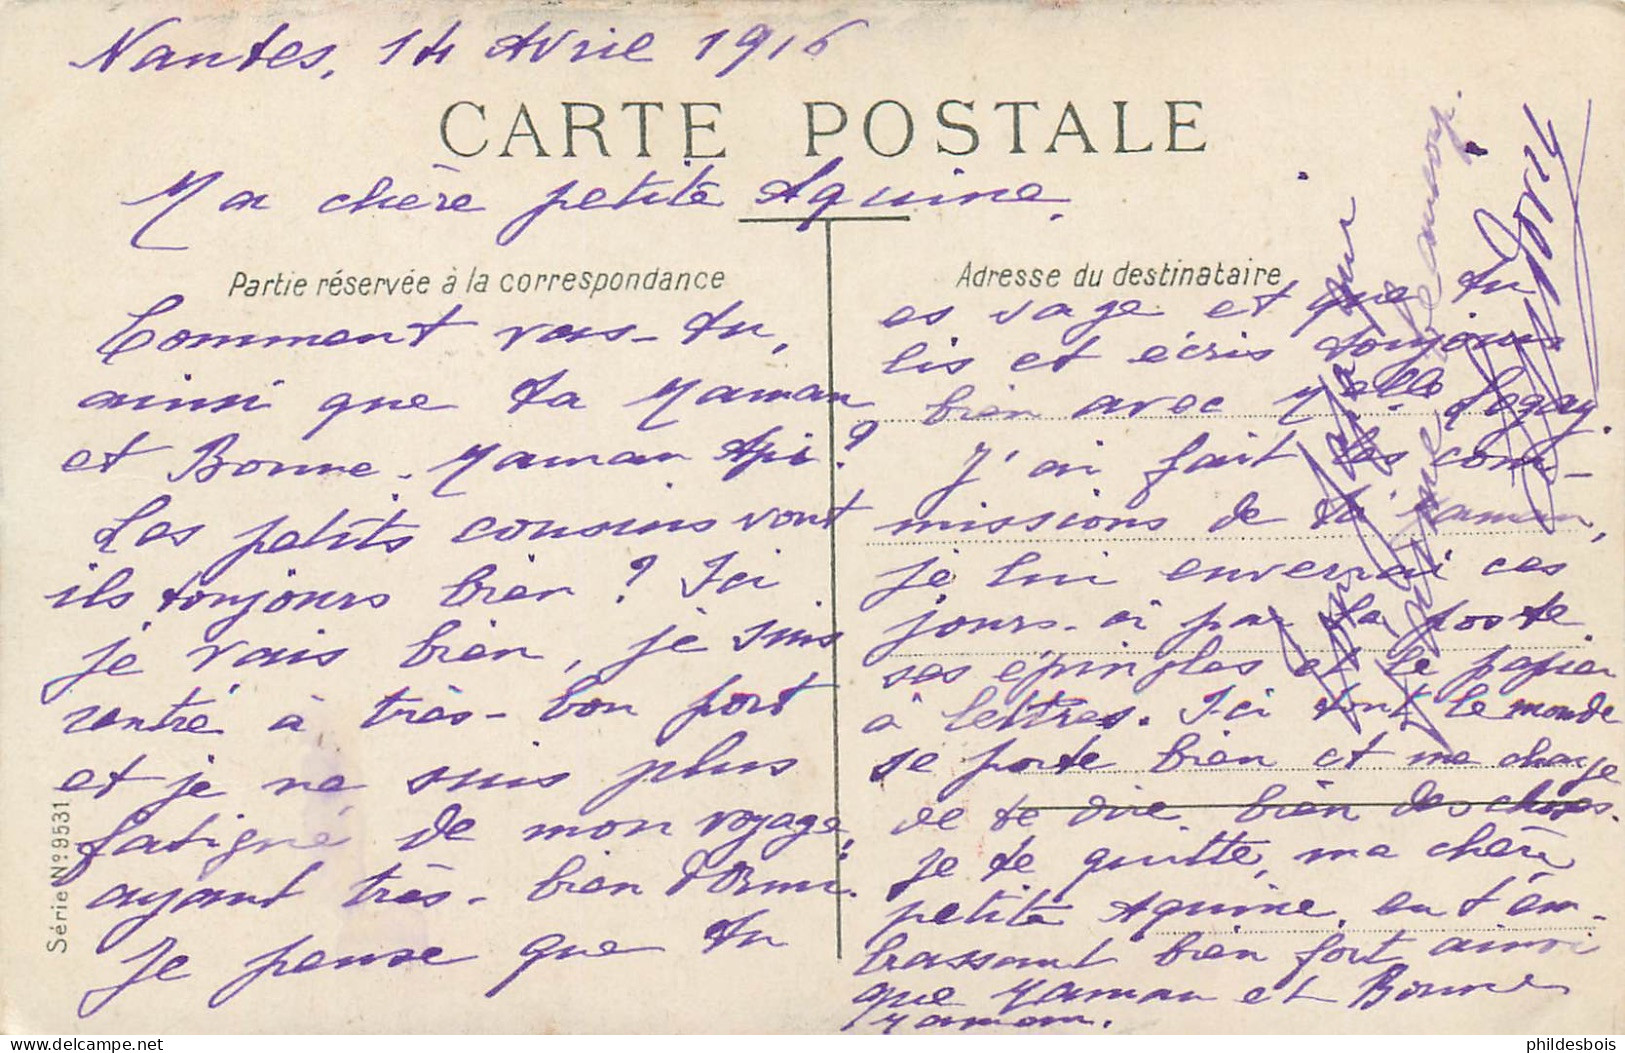 Nantes, 14 Avril 1916
CARTE POSTALE
Ma chère petite Aquine,
Partie réservée à la correspondance
Comment vas-tu,
ainsi que ta Maman
et Bonne-Maman Api?
Les petits cousins vont
ils toujours bien? Ici
je vais bien, je suis
rentré à très-bon port
et je ne suis plus
fatigué de mon voyage,
ayant très-bien dormi.
Je pense que tu
Série No 9531
Adresse du destinataire
es sage et que tu
lis et écris toujours
bien avec Melle Legay.
J'ai fait les com-
missions de ta maman,
je lui enverrai ces
jours-ci par la poste
ses épingles et le papier
à lettres. Ici tout le monde
se porte bien et me charge
de te dire bien des choses.
Je te quitte, ma chère
petite Aquine, en t'em-
brassant bien fort ainsi
que Maman et Bonne
Maman.
Ton
qui
t'aime
beaucoup.
phildesbois